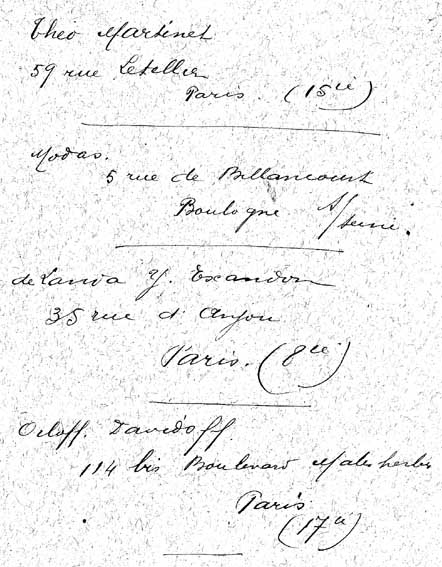 Theo Martinet
59 rue Letellier
Paris. (15ie)
Modas.
5 rue de Billancourt
Boulogne s/seine.
de Landa Y. Escandon
35 rue d'Anjou
Paris. (8ie)
Orloff. Davidoff.
114 bis Boulevard Malesherbes
Paris
(17ie)